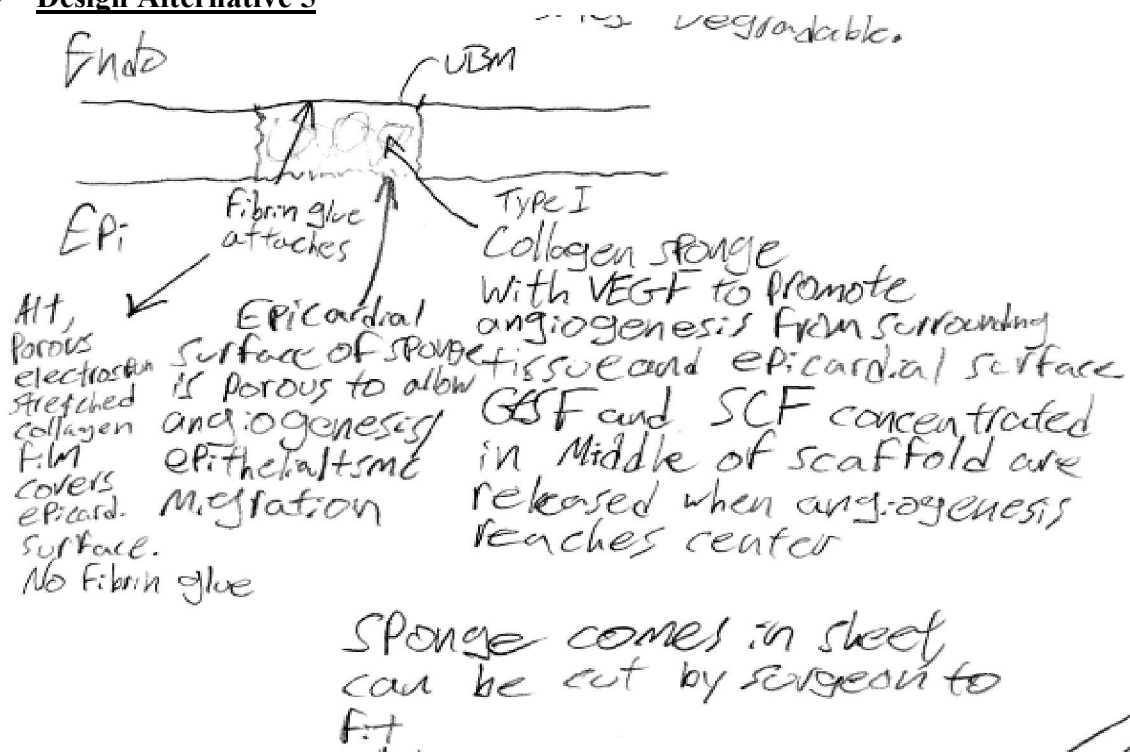 Design Alternative 3
Degradable.
Endo
UBM
Fibrin glue
attaches
Epi
Type I
Collagen sponge
with VEGF to promote
angiogenesis from surrounding
tissue and epicardial surface
GCSF and SCF concentrated
in Middle of scaffold are
released when angiogenesis
reaches center
Epicardial
surface of sponge
is porous to allow
angiogenesis/
epithelial+smc
Migration
Alt,
Porous
electrospun
stretched
collagen
film
covers
epicard.
surface.
No Fibrin glue
Sponge comes in sheet,
can be cut by surgeon to
fit